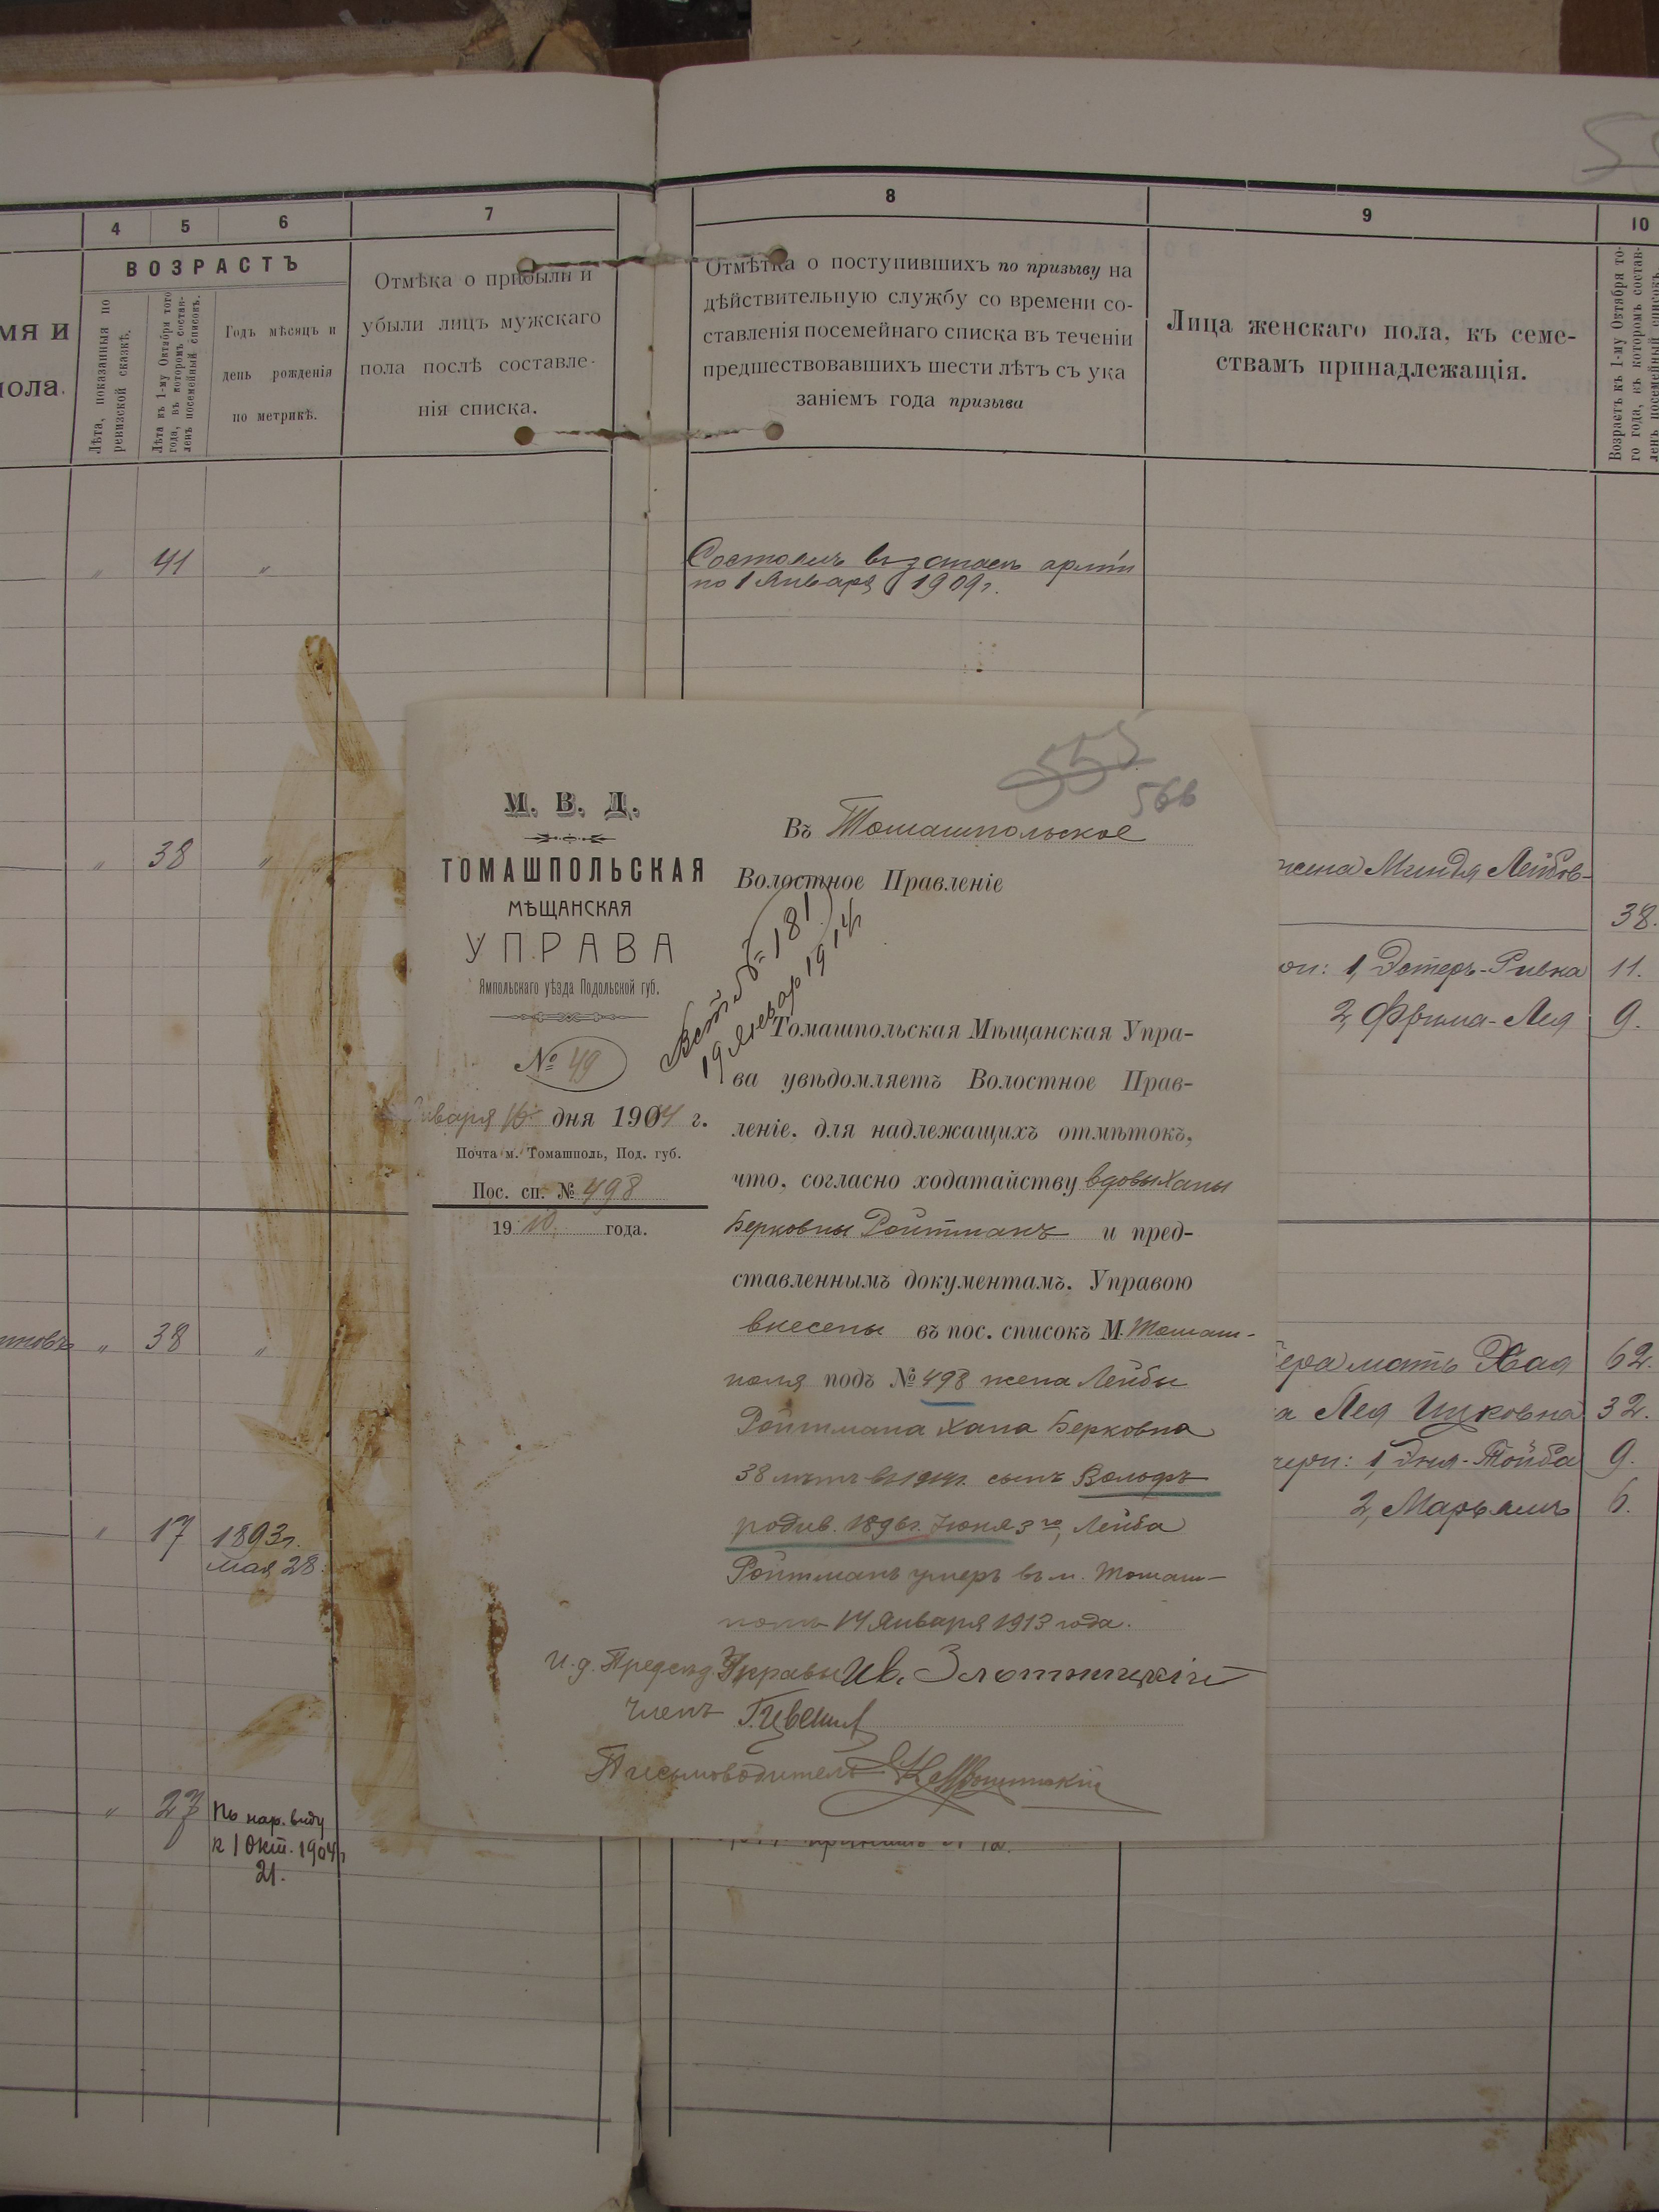 4
5
6
7
8
9
10
ВОЗРАСТЪ
мя и
пола.
Лѣта, показанныя по
ревизской сказкѣ.
Лѣта къ 1-му Октября того
года, въ которомъ состав-
ленъ посемейный списокъ.
Годъ мѣсяцъ и
день рожденія
по метрикѣ.
Отмѣка о прибыли и
убыли лицъ мужскаго
пола послѣ составле-
нія списка.
Отмѣтка о поступившихъ по призыву на
дѣйствительную службу со времени со-
ставленія посемейнаго списка въ теченіи
предшествовавшихъ шести лѣтъ съ ука
заніемъ года призыва
Лица женскаго пола, къ семе-
ствамъ принадлежащія.
Возрастъ къ 1-му Октября то-
го года, въ которомъ состав-
ленъ посемейный списокъ.
" 41 "
Состоитъ въ запасѣ арміи
по 1 Января 1909г.
" 38 "
жена Миндя Лейбов-
38.
1, Эстеръ-Ривка 11.
2, Фрима-Лея 9.
" 38 "
мать Хая 62.
Лея Ицковна 32.
1, Эня-Тойба 9.
2, Марьямъ 6.
" 17 1893г.
мая 28.
" 27 По нар. виду
к 1 Окт. 1904г
21.
555
566
М. В. Д.
ТОМАШПОЛЬСКАЯ
МѢЩАНСКАЯ
УПРАВА
Ямпольскаго уѣзда Подольской губ.
№ 49
Января 16 дня 1904 г.
Почта м. Томашполь, Под. губ.
Пос. сп. № 498
1910 года.
Въ Томашпольское
Волостное Правленіе
№ 181
19 Январ 1914
Томашпольская Мѣщанская Упра-
ва увѣдомляетъ Волостное Прав-
леніе, для надлежащихъ отмѣтокъ,
что, согласно ходатайству вдовы Ханы
Берковны Ройтманъ и пред-
ставленнымъ документамъ, Управою
внесены въ пос. списокъ М. Томаш-
поля подъ № 498 жена Лейбы
Ройтмана Хана Берковна
38 лѣтъ въ 1914г. сынъ Волофъ
родив. 1896г. Іюня 3го, Лейба
Ройтманъ умеръ въ м. Томаш-
полѣ 14 Января 1913 года.
И.д. Предсѣд. Управы Ив. Злотницкій
Членъ
Письмоводитель